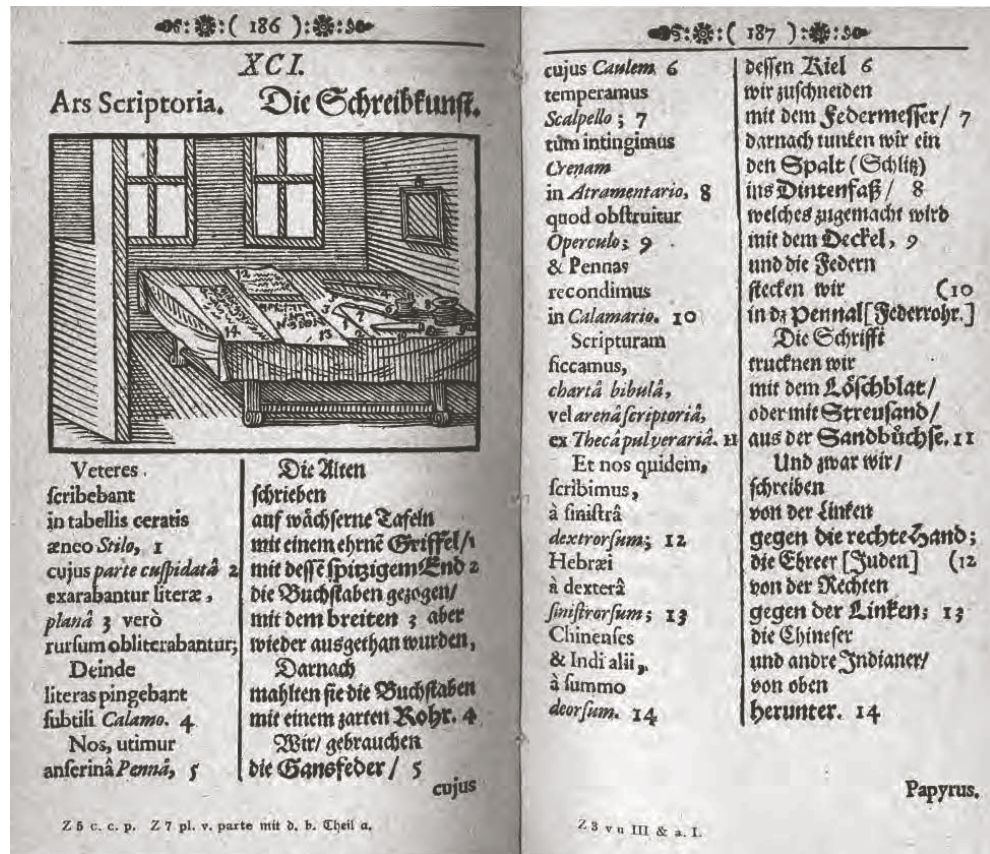 ( 186 )
XCI.
Ars Scriptoria. Die Schreibkunſt.
12
14.
13
Veteres.
ſcribebant
in tabellis ceratis
æneo Stilo, 1
cujus parte cuſpidatâ 2
exarabantur literæ,
planâ 3 verò
rurſum obliterabantur;
Deinde
literas pingebant
ſubtili Calamo. 4
Nos, utimur
anſerinâ Pennâ, 5
Die Alten
ſchrieben
auf wächſerne Tafeln
mit einem ehrnẽ Griffel/1
mit deſſẽ ſpitzigem End 2
die Buchſtaben gezogen/
mit dem breiten 3 aber
wieder ausgethan wurden,
Darnach
mahlten ſie die Buchſtaben
mit einem zarten Rohr. 4
Wir/ gebrauchen
die Gansfeder / 5
cujus
Z 5 c. c. p. Z 7 pl. v. parte mit d. b. Theil a.
( 187 )
cujus Caulem 6
temperamus
Scalpello ; 7
tùm intingimus
Crenam
in Atramentario, 8
quod obſtruitur
Operculo; 9
& Pennas
recondimus
in Calamario. 10
Scripturam
ſiccamus,
chartâ bibulâ,
vel arenâ ſcriptoriâ,
ex Thecâ pulverariâ. 11
Et nos quidem,
ſcribimus,
à ſiniſtrâ
dextrorſum; 12
Hebræi
à dexterâ
ſiniſtrorſum; 13
Chinenſes
& Indi alii,
à ſummo
deorſum. 14
deſſen Kiel 6
wir zuſchneiden
mit dem Federmeſſer/ 7
darnach tunken wir ein
den Spalt (Schlitz)
ins Dintenfaß / 8
welches zugemacht wird
mit dem Deckel, 9
und die Federn
ſtecken wir (10
in dz Pennal [Federrohr.]
Die Schrifft
trucknen wir
mit dem Löſchblat/
oder mit Streuſand/
aus der Sandbüchſe. 11
Und zwar wir/
ſchreiben
von der Linken
gegen die rechte Hand;
die Ebreer [Juden] (12
von der Rechten
gegen der Linken; 13
die Chineſer
und andre Indianer/
von oben
herunter. 14
Papyrus.
Z 3 v u III & a. I.